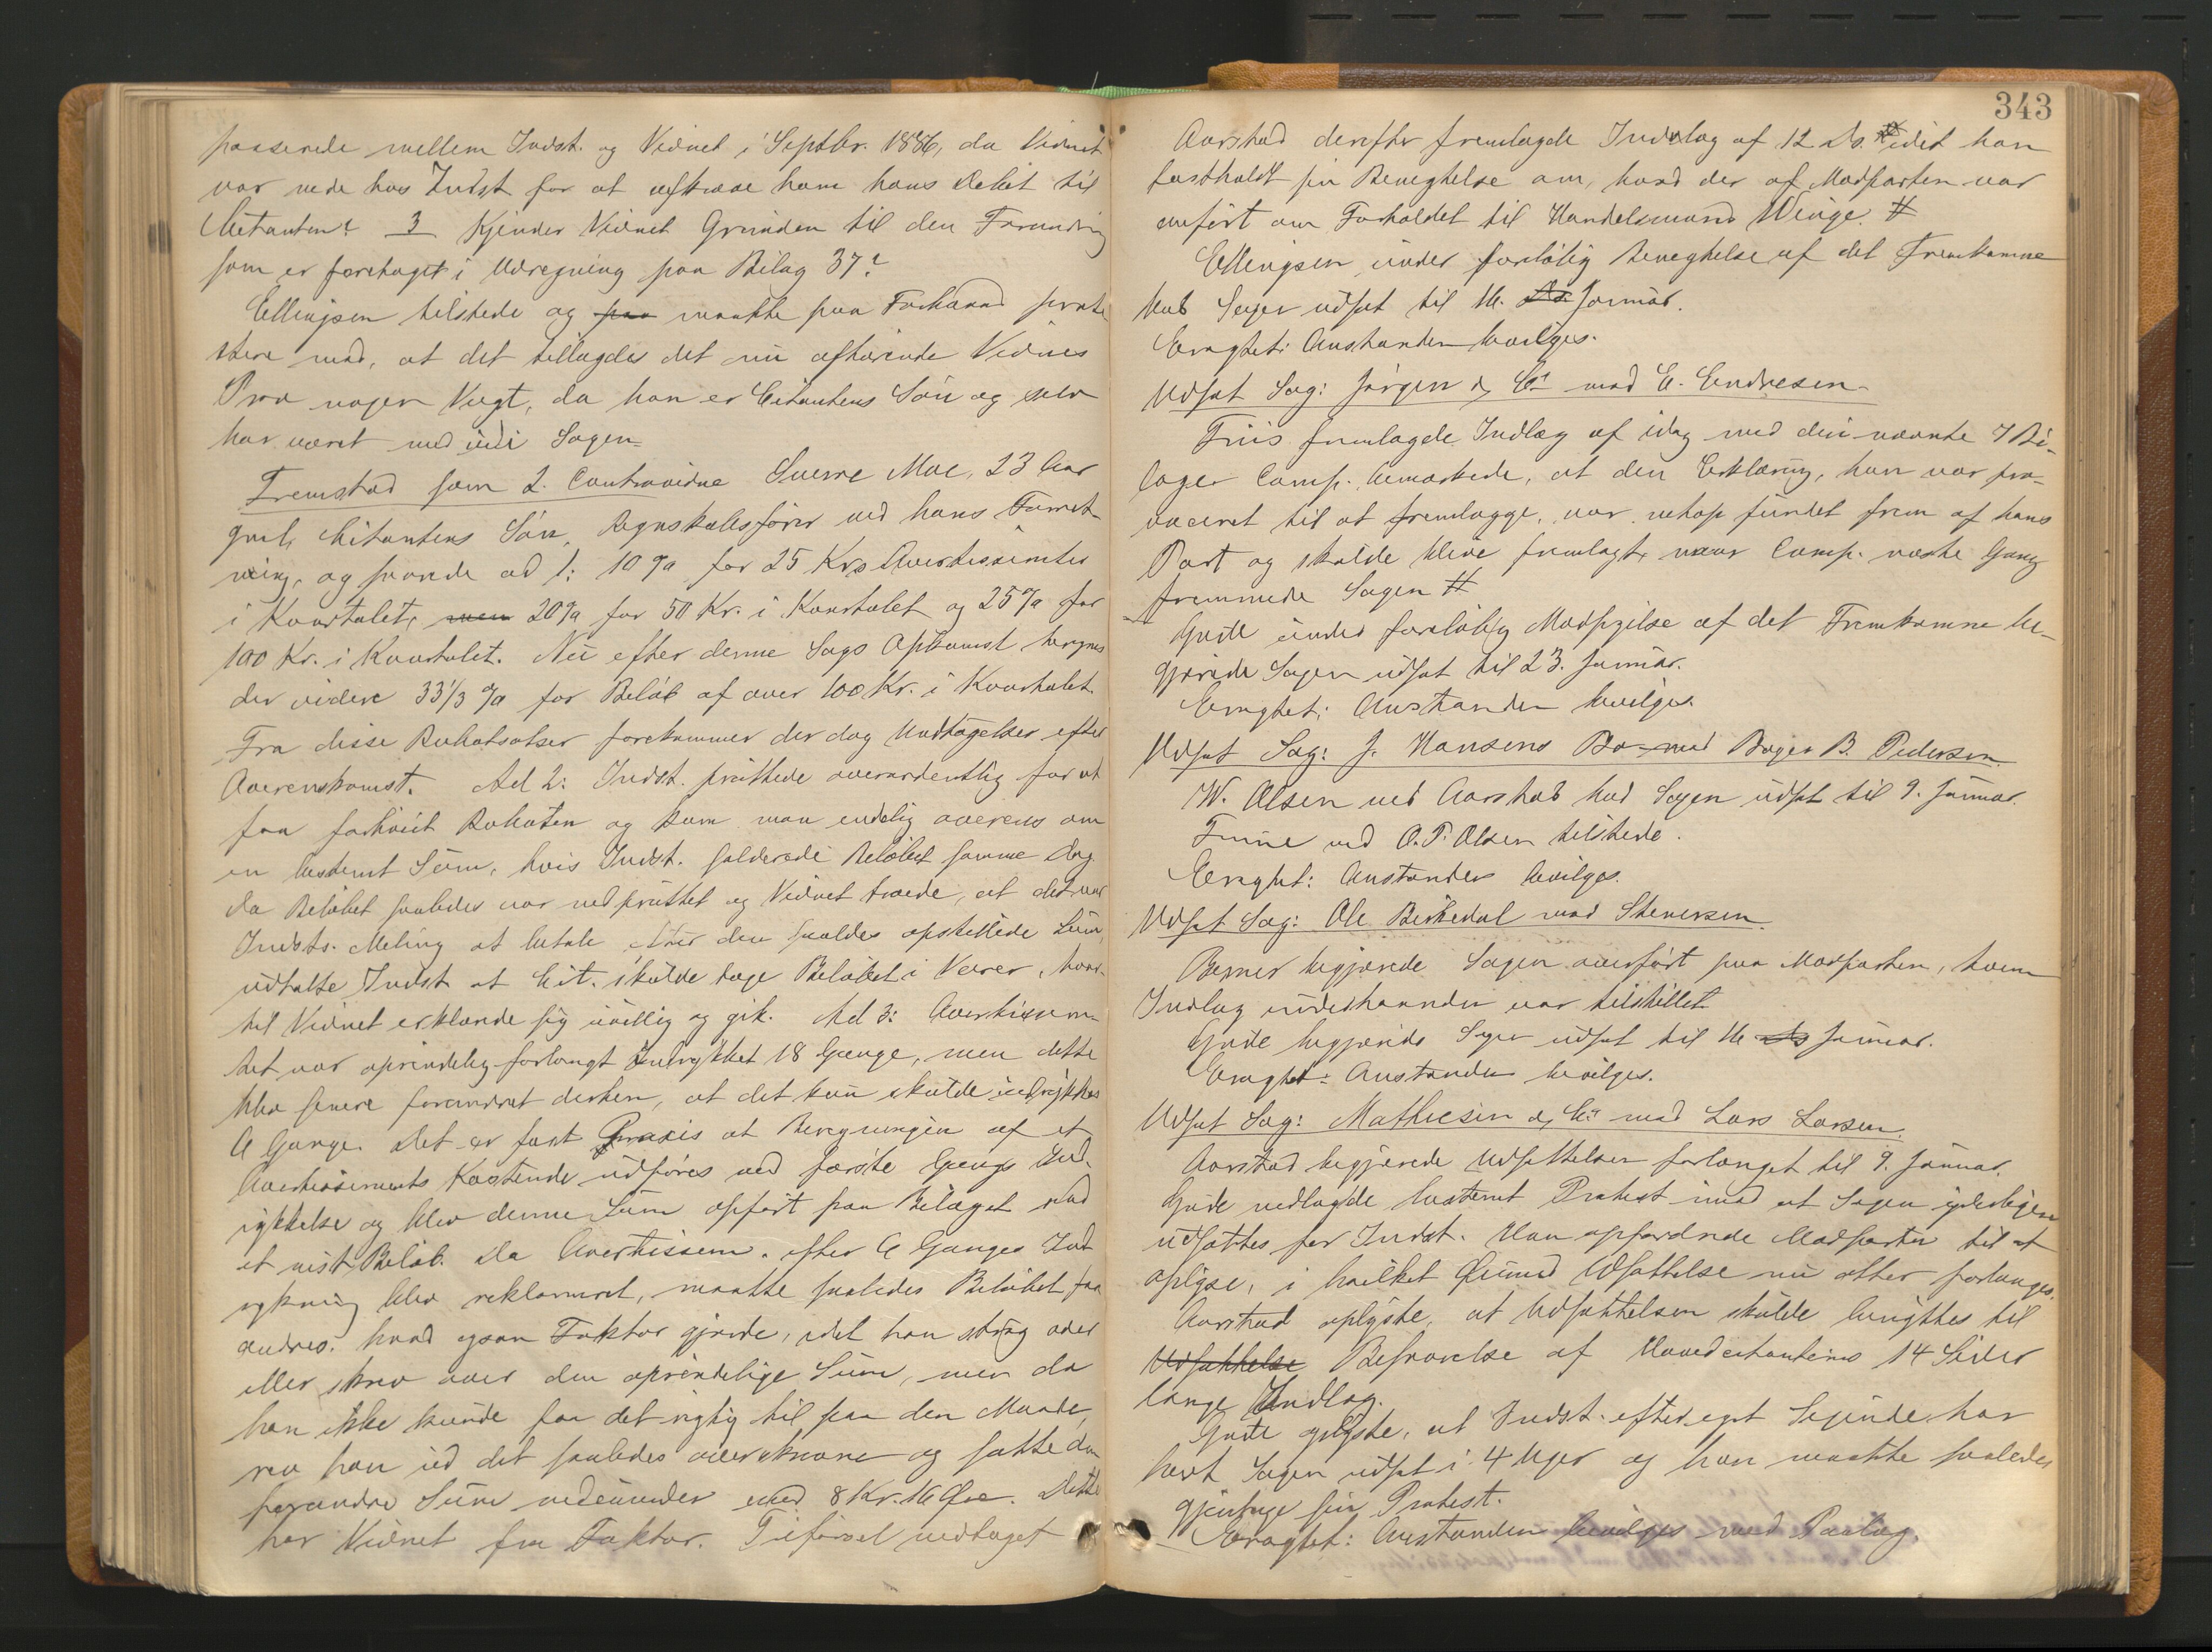 passerede mellem Indst. og Vidnet i Septbr. 1886, da Vidnet
var nede hos Indst for at afkræve ham hans Debet til
Citanten? 3 Kjender Vidnet Grunden til den Forandring
som er foretaget i Udregning paa Bilag 37?
Ellingsen tilstede og paa maatte paa Forhaand prote
stere mod, at det tillagdes det nu afhørende Vidnes
Prov nogen Vægt, da han er Citantens Søn og selv
har været med i Sagen
Fremstod som 2. Contravidne Sverre Moe, 23 Aar
gml, Citantens Søn, Regnskabsfører ved hans Forret
ning, og svarede ad 1: 10 % for 25 Kr Avertissementer
i Kvartalet, men 20 % for 50 Kr. i Kvartalet og 25 % for
100 Kr. i Kvartalet. Nu efter denne Sags Opkomst beregnes
der videre 33 1/3 % for Beløb af over 100 Kr. i Kvartalet.
Fra disse Rabatsatser forekommer der dog Undtagelser efter
Overenskomst. Ad 2: Indst. pruttede overordentlig for at
faa forhøiet Rabaten og kom man endelig overens om
en bestemt Sum, hvis Indst. salderede Beløbet samme Dag.
Da Beløbet saaledes var nedpruttet og Vidnet troede, at det var
Indsts. Mening at betale efter den saaledes opstillede Sum,
udtalte Indst at Cit. skulde tage Beløbet i Varer, hvor-
til Vidnet erklærede sig uvillig og gik. Ad 3: Avertissemen
tet var oprindelig forlangt Indrykket 18 Gange, men dette
blev senere forandret derhen, at det kun skulde indrykkes
6 Gange. Det er fast Praxis at Beregningen af et
Avertissements Kostende udføres ved første Gangs Ind
rykkelse og blev denne Sum opført paa Bilaget med
et vist Beløb. Da Avertissem. efter 6 Ganges Ind
rykning blev reklameret, maatte saaledes Beløbet for
andres, hvad ogsaa Faktor gjorde, idet han strøg over
eller skrev over den oprindelige Sum, men da
han ikke kunde faa det rigtig til paa den Maade,
rev han ud det saaledes overskrevne og satte den
forandre Sum nedenunder med 8 Kr. 16 Øre. Dette
har Vidnet fra Faktor. Tilførsel vedtaget
343
Aarstad derefter fremlagde Indlæg af 12 Ds. idet han
fastholdt sin Benegtelse om, hvad der af Modparten var
anført om Forholdet til Handelsmand Winge. #
Ellingsen under foreløbig Benegtelse af det Fremkomne
bad Sagen udsat til 16. Ds. Januar.
Eragtet: Anstanden bevilges.
Udsat Sag: Jørgen & Co mod E. Endresen
Friis fremlagde Indlæg af idag med deri nævnte 7 Bi-
lager Comp. bemærkede, at den Erklæring, han var pro-
voceret til at fremlægge, var netop fundet frem af hans
Part og skulde blive fremlagt, naar Comp. næste Gang
fremmede Sagen #
Gude under foreløbig Modsigelse af det Fremkomne be-
gjærede Sagen udsat til 23. Januar.
Eragtet: Anstanden bevilges.
Udsat Sag: J. Hansens Bo mod Bager B. Pedersen
W. Olsen ved Aarstad bad Sagen udsat til 9. Januar.
ved O. P. Olsen tilstede.
Eragtet: Anstanden bevilges.
Udsat Sag: Ole Birkedal mod Stenersen.
Berner begjærede Sagen overført paa Modparten, hvem
Indlæg underhaanden var tilstillet
Gude begjærede Sagen udsat til 16 Ds Januar.
Eragtet: Anstanden bevilges.
Udsat Sag: Mathiesen & Co mod Lars Larsen.
Aarstad begjærede Udsættelsen forlænget til 9. Januar.
Gude nedlagde bestemt Protest imod at Sagen yderligere
udsættes for Indst. Han opfordrede Modparten til at
oplyse, i hvilket Øiemed Udsættelse nu atter forlanges.
Aarstad oplyste, at Udsættelsen skulde benyttes til
Udsættelse Besvarelse af Hovedcitantens 14 Sider
lange Indlæg.
Gude oplyste, at Indst. efter eget Sigende har
havt Sagen udsat i 4 Uger og han maatte saaledes
gjentage sin Protest.
Eragtet: Anstanden bevilges med Paalæg.